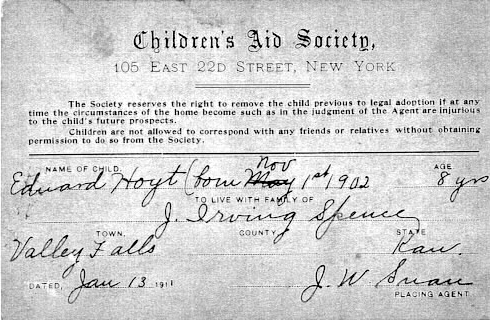 Children's Aid Society,
105 East 22d Street, New York
The Society reserves the right to remove the child previous to legal adoption if at any
time the circumstances of the home become such as in the judgment of the Agent are injurious
to the child's future prospects.
Children are not allowed to correspond with any friends or relatives without obtaining
permission to do so from the Society.
NAME OF CHILD. AGE
Nov
Edward Hoyt (born May 1st 1902 8 yrs
TO LIVE WITH FAMILY OF
J. Irving Spence
TOWN. COUNTY. STATE
Valley Falls Kan.
DATED, Jan 13 1911 J. W. Swan
PLACING AGENT.